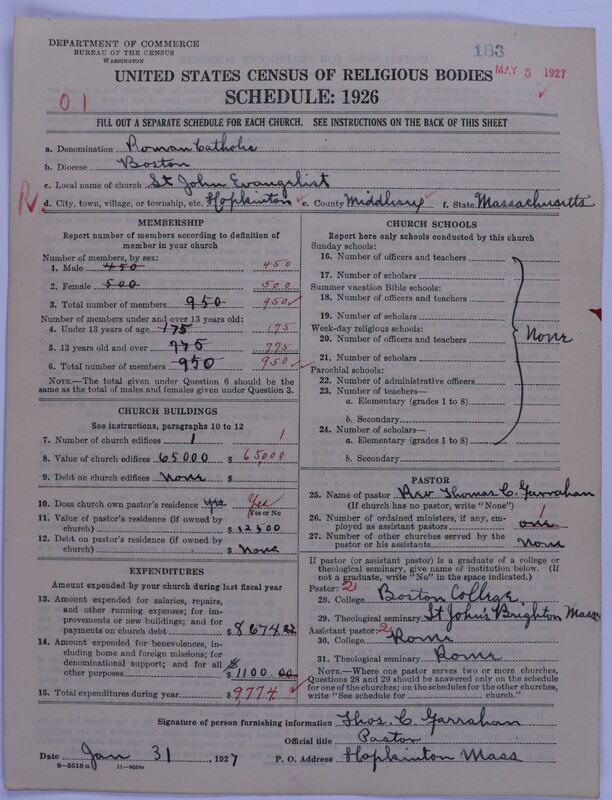 DEPARTMENT OF COMMERCE
BUREAU OF THE CENSUS
WASHINGTON
183
MAY 5 1927
UNITED STATES CENSUS OF RELIGIOUS BODIES
SCHEDULE: 1926
01
FILL OUT A SEPARATE SCHEDULE FOR EACH CHURCH. SEE INSTRUCTIONS ON THE BACK OF THIS SHEET
a. Denomination Roman Catholic
b. Diocese Boston
c. Local name of church St John Evangelist
R d. City, town, village, or township, etc. Hopkinton e. County Middlesex f. State Massachusetts
MEMBERSHIP
Report number of members according to definition of
member in your church
Number of members, by sex:
1. Male 450 450
2. Female 500 500
3. Total number of members 950 950
Number of members under and over 13 years old:
4. Under 13 years of age 175 175
5. 13 years old and over 775 775
6. Total number of members 950 950
NOTE.—The total given under Question 6 should be the
same as the total of males and females given under Question 3.
CHURCH BUILDINGS
See instructions, paragraphs 10 to 12
7. Number of church edifices 1 1
8. Value of church edifices 65000 $ 65,000
9. Debt on church edifices None $
10. Does church own pastor's residence yes Yes
(Yes or No)
11. Value of pastor's residence (if owned by
church) $ 12500
12. Debt on pastor's residence (if owned by
church) $ None
EXPENDITURES
Amount expended by your church during last fiscal year
13. Amount expended for salaries, repairs,
and other running expenses; for im-
provements or new buildings; and for
payments on church debt $ 8674.22
14. Amount expended for benevolences, in-
cluding home and foreign missions; for
denominational support; and for all
other purposes $ 1100.00
15. Total expenditures during year $ 9774
CHURCH SCHOOLS
Report here only schools conducted by this church
Sunday schools:
16. Number of officers and teachers
17. Number of scholars
Summer vacation Bible schools:
18. Number of officers and teachers
19. Number of scholars
Week-day religious schools:
20. Number of officers and teachers
None
21. Number of scholars
Parochial schools:
22. Number of administrative officers
23. Number of teachers—
a. Elementary (grades 1 to 8)
b. Secondary
24. Number of scholars—
a. Elementary (grades 1 to 8)
b. Secondary
PASTOR
25. Name of pastor Rev Thomas C. Garrahan
(If church has no pastor, write "None")
26. Number of ordained ministers, if any, em-
ployed as assistant pastors one 1
27. Number of other churches served by the
pastor or his assistants None
If pastor (or assistant pastor) is a graduate of a college or
theological seminary, give name of institution below. (If
not a graduate, write "No" in the space indicated.)
Pastor: 2
28. College Boston College
29. Theological seminary St John's Brighton Mass
Assistant pastor: 2
30. College Rome
31. Theological seminary Rome
NOTE.—Where one pastor serves two or more churches,
Questions 28 and 29 should be answered only on the schedule
for one of the churches; on the schedules for the other churches,
write "See schedule for church."
Signature of person furnishing information Thos. C. Garrahan
Official title Pastor
Date Jan 31, 1927 P. O. Address Hopkinton Mass